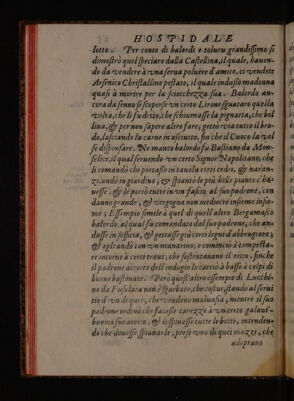 HOSPIDALE
lotto. Per conto di balordi e toluru grandissimo si
dimostrò quel speciaro dalla Castellina, il quale, hauen-
do da vendere à vna serua poluere d'amito, ci vendete
Arsenico Christallino pestato, il quale indusse madonna
quasi à morire per la sciocchezza sua. Balordo an-
cora da senno si scoperse vn certo Lirone sguataro quella
volta, che li fu detto, che schiumasse la pignatta, che bol
liua, & per non sapere altro fare, gettò via tutto il bro-
do, lasciando la carne in asciutto, fin che il Cuoco la vol
se dispensare. Ne manco balordo fu Bastiano da Mon-
selice, il qual seruendo vn certo Signor Napolitano, che
li comandò che portasse in tauola certi cedri, & naran-
zi, andò in giardino, & spiantò le più belle piante c'ha-
uesse, & le portò tutte in vn fascio al suo padrone, con
danno grande, & vergogna non mediocre insieme insie-
me; Essempio simile à quel di quell'altro Bergamasco
balordo, al qual fu comandato dal suo padrone, che an-
dasse in soffitta, & gettasse giù certi legni d'abbrugiare;
& egli andò con vn manarino, e cominciò à tempesta-
re intorno à certi traui, che sostentauano il tetto, finche
il padrone accorto dell'imbogio lo cacciò à basso à colpi di
buone bastonate. Però quest'altro essempio di Locchi-
no da Fusolara non è sgarbato, che costui, stando al serui
tio d'vn di quei, che vendono maluasia, mentre il suo
padrone ordinò che facesse carezze à vn certo galant'-
huomo suo amico, & li spinasse tutte le botti, intenden-
do che douesse spianarle, prese vno di quei mazzi, che
adoprano